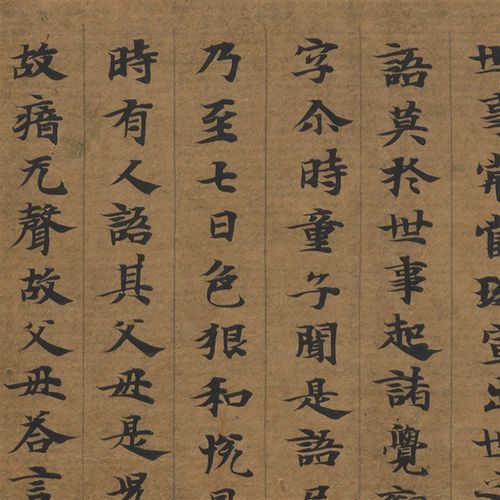 語莫於世事起諸覺
字尒時童子聞是語
乃至七日色狠和悅
時有人語其父母是
故瘖无聲故父母答言